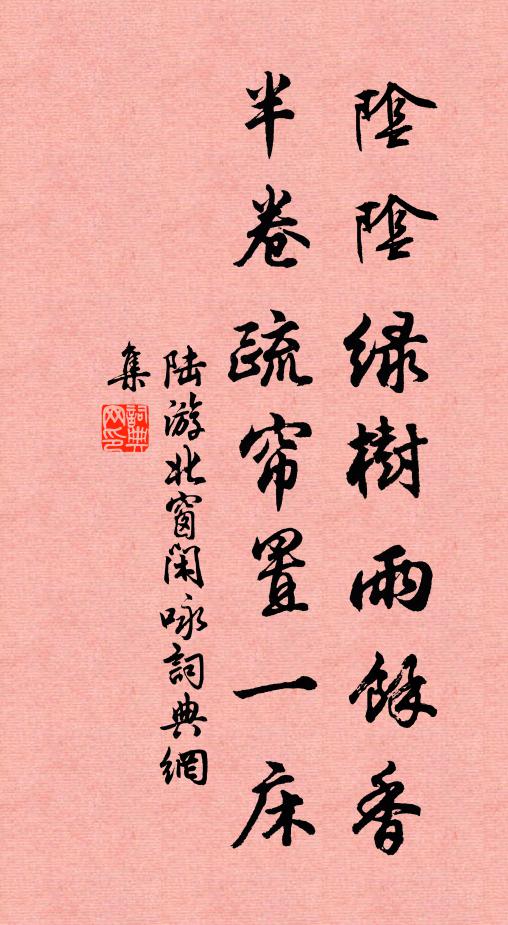 陰陰綠樹雨餘香
半卷疏帘置一床
陆游北窗閑咏詞典網
集
詞典网印